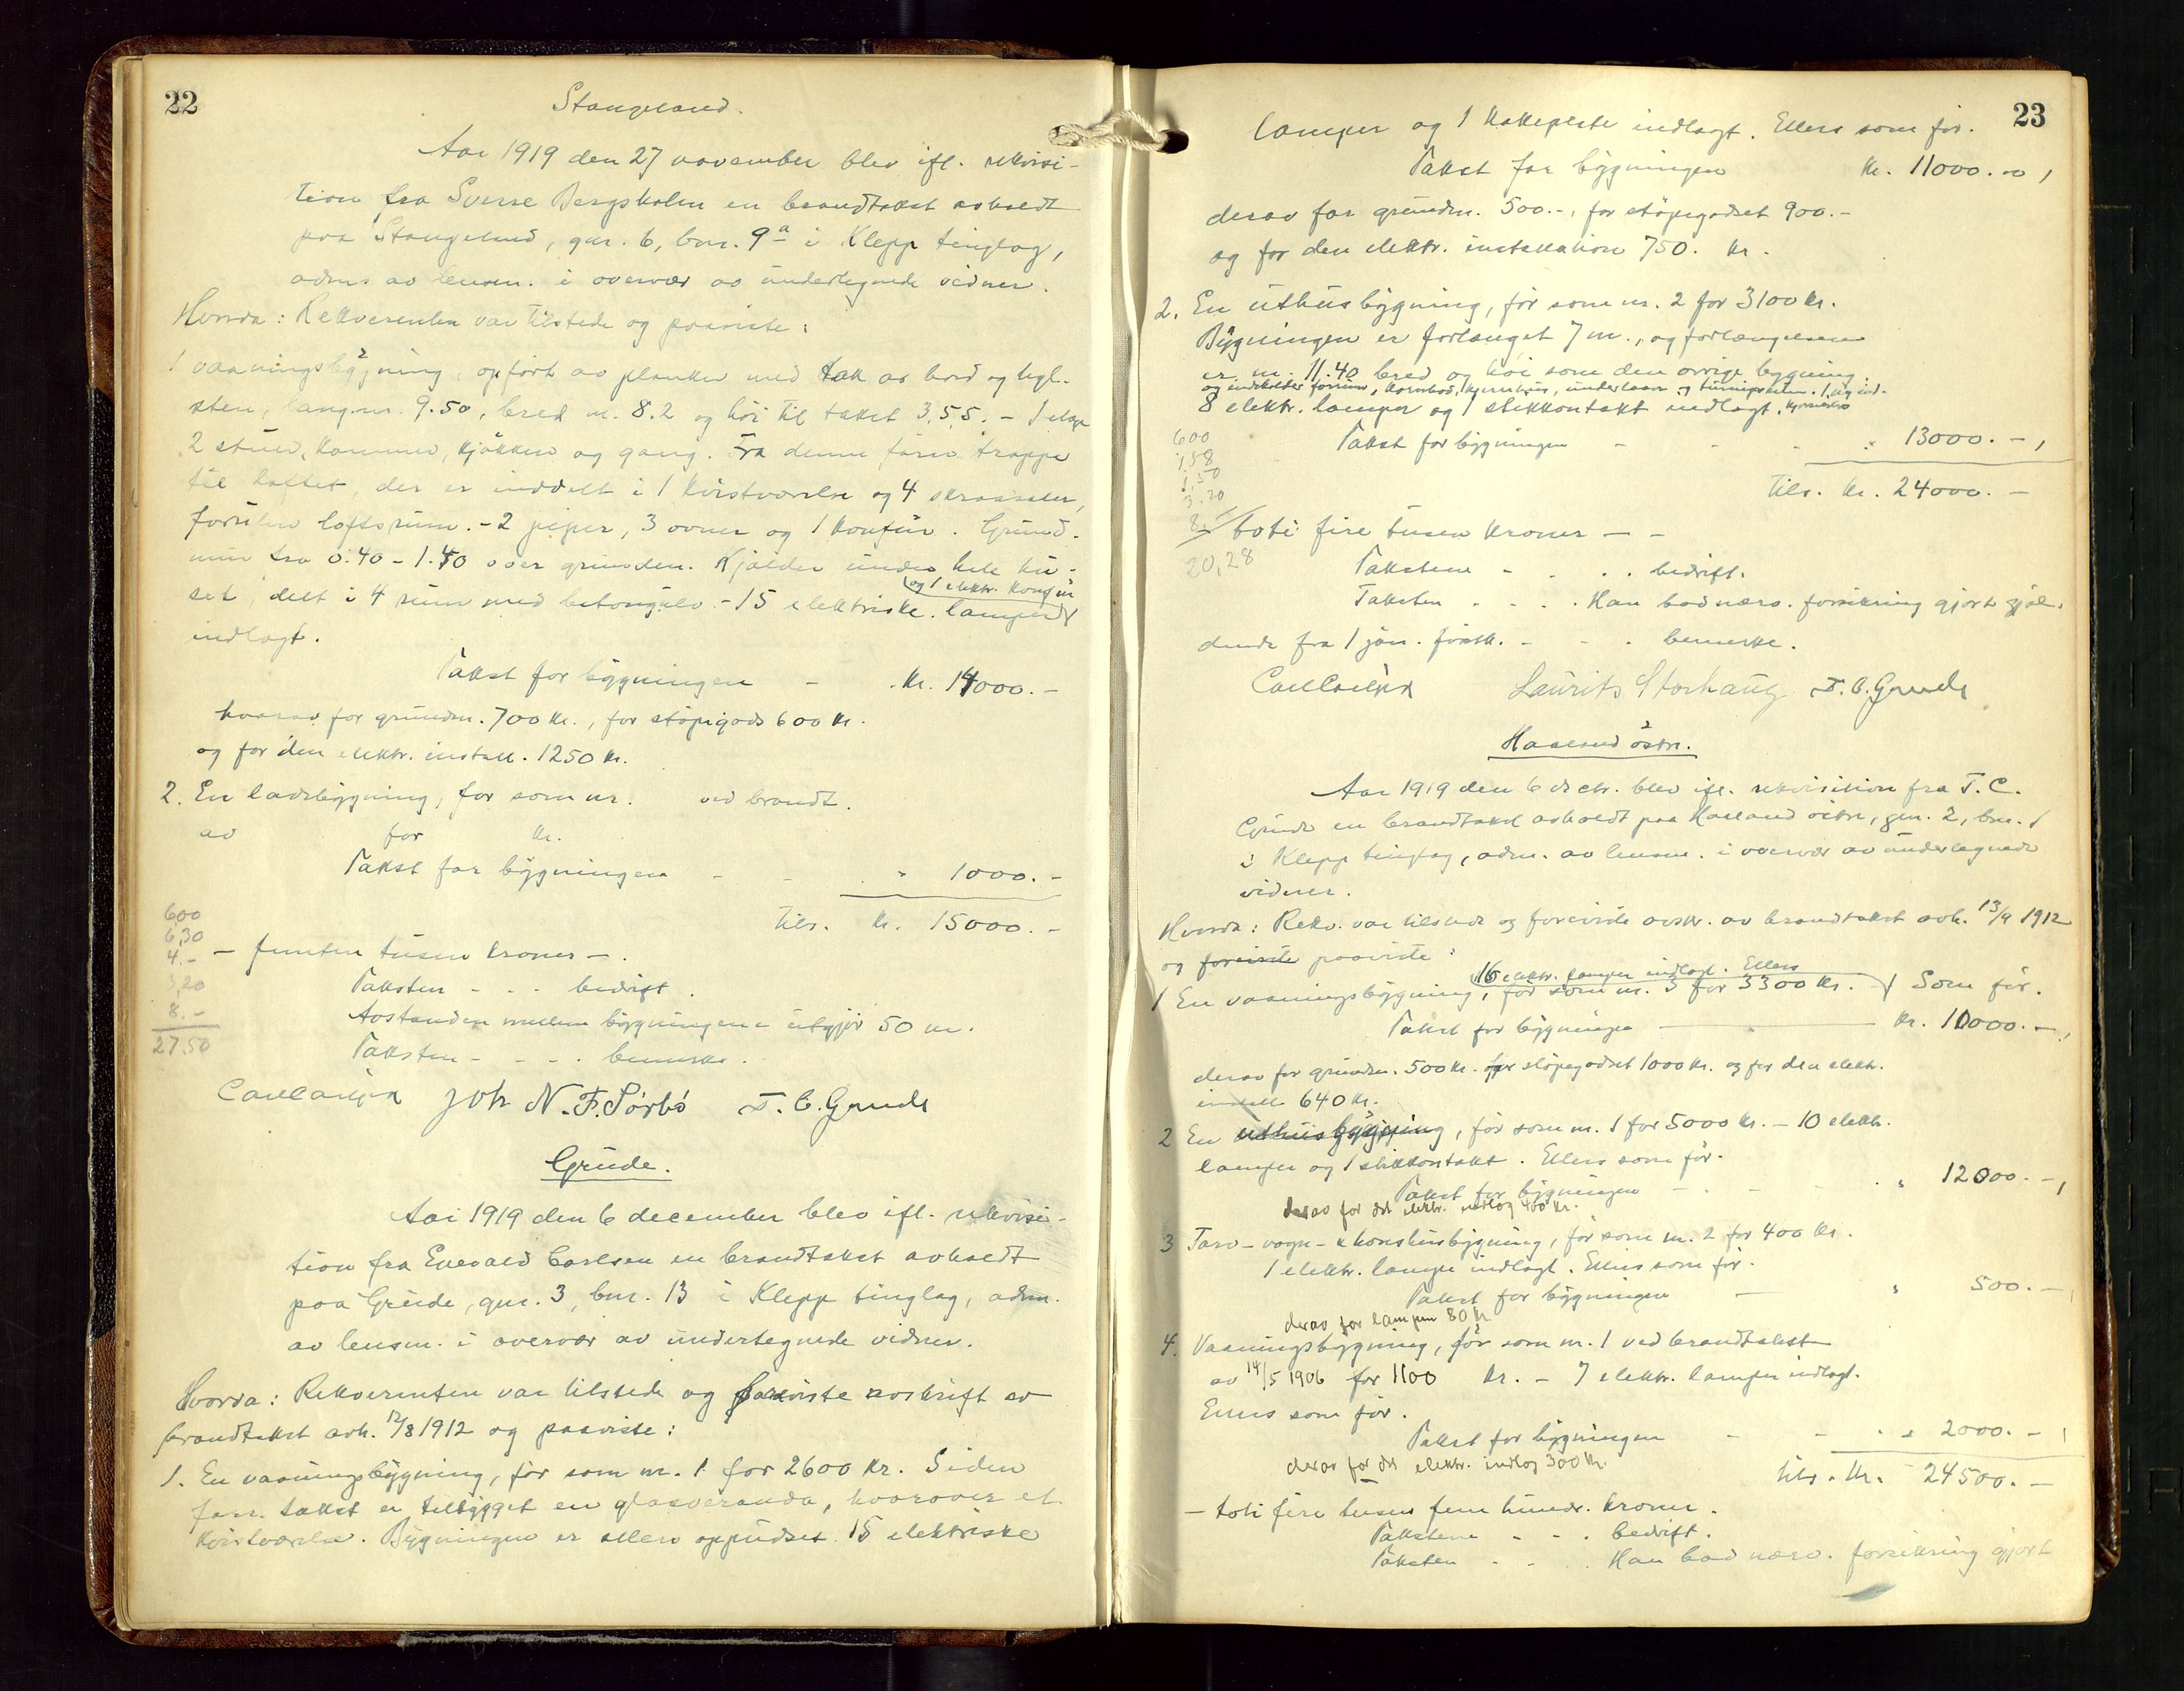 22
Stangeland.
Aar 1919 den 27 november blev ifl. rekvisi-
tion fra Sverre Bergsholm en brandtakst avholdt
paa Stangeland, gnr. 6, bnr. 9a i Klepp tinglag,
adm. av lensm. i overvær av undertegnede vidner.
Hvorda: Rekvirenten var tilstede og paaviste:
1 vaaningsbygning, opført av planker med tak av bord og tegl-
sten, lang m. 9.50, bred m. 8.2 og høi til taket 3,55. - 1 etage
2 stuer, kammer, kjøkken og gang. Fra denne fører trappe
til loftet, der er inddelt i 1 kvistværelse og 4 skraasaler,
foruten loftsrum. - 2 piper, 3 ovner og 1 komfur. Grund-
mur fra 0.40 - 1.40 over grunden. Kjælder under hele hu-
og 1 elektr. komfur
set, delt i 4 rum med betongulv. - 15 elektriske lamper
indlagt.
Takst for bygningen - Kr. 14000. -
hvorav for grundm. 700 kr., for støpegods 600 kr.
og for den elektr. install. 1250 kr.
2. En ladebygning, før som nr. ved brandt.
av for kr.
Takst for bygningen - - " 1000. -
Tils. kr. 15000. -
600
6,30
4.-
3,20
8.-
27.50
- femten tusen kroner -.
Taksten - - - bedrift.
Avstanden mellem bygningene utgjør 50 m.
Taksten - - - bemerke.
Joh N. F. Sørbø T. C. Grude
Grude.
Aar 1919 den 6 december blev ifl. rekvisi-
tion fra Enevald Carlsen en brandtakst avholdt
paa Grude, gnr. 3, bnr. 13 i Klepp tinglag, adm.
av lensm. i overvær av undertegnede vidner.
Hvorda: Rekvirenten var tilstede og foreviste avskrift av
brandtakst avh. 12/8 1912 og paaviste:
1. En vaaningsbygning, før som nr. 1 for 2600 kr. Siden
forr. takst er tilbygget en glasveranda, hvorover et
kvistværelse. Bygningen er ellers oppudset. 15 elektriske
23
lamper og 1 kokeplate indlagt. Ellers som før.
Takst for bygningen Kr. 11000. -,
derav for grundm. 500.-, for støpegodset 900.-
og for den elektr. installation 750. kr.
2. En uthusbygning, før som nr. 2 for 3100 kr.
Bygningen er forlænget 7 m., og forlængelsen
er m. 11.40 bred og høi som den øvrige bygning
8 elektr. lamper og 1 stikkontakt indlagt.
Takst for bygningen - - - " 13000. -,
Tils. kr. 24000. -
600
1,58
1,50
3.20
8.-
20,28
- toti fire tusen kroner - -
Takstene - - - bedrift.
Taksten - - - Han bad nærv. forsikring gjort gjæl-
dende fra 1 jan. førstk. - - - bemerke.
Laurits Storhaug T. C. Grude
Haaland østre.
Aar 1919 den 6 decbr. blev ifl. rekvisition fra T. C.
Grude en brandtakst avholdt paa Haaland østre, gnr. 2, bnr. 1
i Klepp tinglag, adm. av lensm. i overvær av undertegnede
vidner.
Hvorda: Rekv. var tilstede og foreviste avskr. av brandtakst avh. 13/9 1912
og foreviste paaviste:
16 elektr. lamper indlagt. Ellers
1 En vaaningsbygning, før som nr. 3 for 3300 kr. Som før.
Takst for bygningen - kr. 10000. -,
derav for grundm. 500 kr. for støpegodset 1000 kr. og for den elektr.
install. 640 kr.
2 En uthusbygning, før som nr. 1 for 5000 kr. - 10 elektr.
lamper og 1 stikkontakt. Ellers som før.
Takst for bygningen - - - " 12000. -,
derav for det elektr. indlæg 400 kr.
3 Torv-vogn- & hønsehusbygning, før som nr. 2 for 400 kr.
1 elektr. lampe indlagt. Ellers som før.
Takst for bygningen - " 500. -,
derav for lampen 80 kr
4. Vaaningsbygning, før som nr. 1 ved brandtakst
av 14/5 1906 for 1100 kr. - 7 elektr. lamper indlagt.
Ellers som før.
Takst for bygningen - - " 2000. -,
derav for det elektr. indlæg 300 kr.
Tils. Kr. 24500. -
- toti fire tusen fem hundr. kroner.
Takstene - - - bedrift.
Taksten - - - Han bad nærv. forsikring gjort